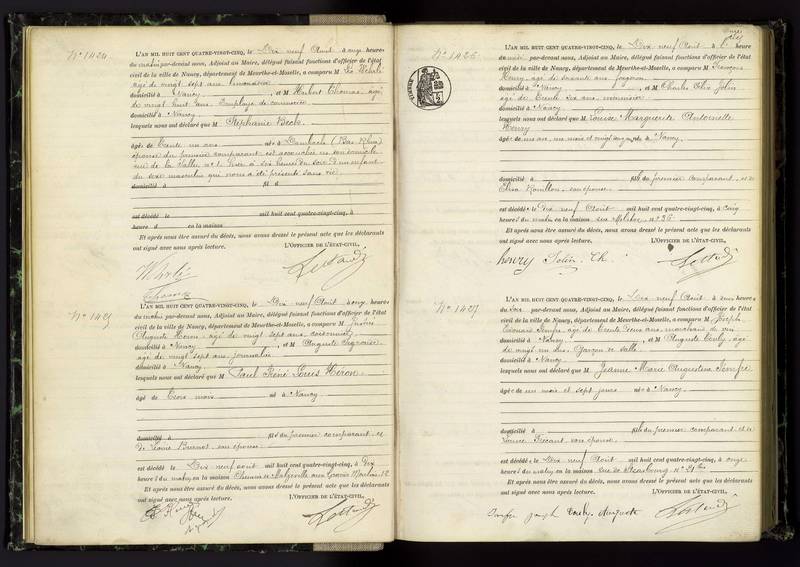 N° 1424.
L'AN MIL HUIT CENT QUATRE-VINGT-CINQ, le Dix neuf Août à onze heures
du matin par-devant nous, Adjoint au Maire, délégué faisant fonctions d'officier de l'état
civil de la ville de Nancy, département de Meurthe-et-Moselle, a comparu M
âgé de vingt sept ans
domicilié à Nancy, et M Hubert Thomas, âgé
de vingt huit ans, Employé de commerce
domicilié à Nancy
lesquels nous ont déclaré que M Stéphanie Beck
âgée de Trente un ans née à Dambach (Bas Rhin)
épouse du premier comparant est accouchée en son domicile
rue de la Salle, n° 1, hier à six heures du soir d'un enfant
du sexe masculin qui nous a été présenté sans vie
domicilié à fil d
est décédé le mil huit cent quatre-vingt-cinq, à
heure d en la maison
Et après nous être assuré du décès, nous avons dressé le présent acte que les déclarants
ont signé avec nous après lecture.
L'OFFICIER DE L'ÉTAT-CIVIL,
Thomas
N° 1425
L'AN MIL HUIT CENT QUATRE-VINGT-CINQ, le Dix neuf Août à onze heures
du matin par-devant nous, Adjoint au Maire, délégué faisant fonctions d'officier de l'état
civil de la ville de Nancy, département de Meurthe-et-Moselle, a comparu M
Auguste Heron, âgé de vingt sept ans, cordonnier
domicilié à Nancy, et M Auguste
âgé de vingt sept ans, journalier
domicilié à Nancy
lesquels nous ont déclaré que M Paul René Louis Heron
âgé de Trois mois né à Nancy
domicilié à fils du premier comparant et
de Louise Brunot, son épouse
est décédé le Dix neuf août mil huit cent quatre-vingt-cinq, à Dix
heures du matin en la maison Chemin de Malzéville aux Grands Moulins 12
Et après nous être assuré du décès, nous avons dressé le présent acte que les déclarants
ont signé avec nous après lecture.
L'OFFICIER DE L'ÉTAT-CIVIL,
N° 1426.
L'AN MIL HUIT CENT QUATRE-VINGT-CINQ, le Dix neuf Août à heure
du par-devant nous, Adjoint au Maire, délégué faisant fonctions d'officier de l'état
civil de la ville de Nancy, département de Meurthe-et-Moselle, a comparu M François
Henry, âgé de soixante ans
domicilié à Nancy, et M Charles Jolin
âgé de Trente six ans, menuisier
domicilié à Nancy
lesquels nous ont déclaré que M Louise Marguerite Antoinette
Henry
âgée de un an, un mois et vingt un née à Nancy
domicilié à fille du premier comparant et de
Elisa son épouse
est décédée le Dix neuf Août mil huit cent quatre-vingt-cinq, à Cinq
heures du matin en la maison rue Molitor, n° 36
Et après nous être assuré du décès, nous avons dressé le présent acte que les déclarants
ont signé avec nous après lecture.
L'OFFICIER DE L'ÉTAT-CIVIL,
henry Jolin Ch.
N° 1427
L'AN MIL HUIT CENT QUATRE-VINGT-CINQ, le Dix neuf Août à heures
du soir par-devant nous, Adjoint au Maire, délégué faisant fonctions d'officier de l'état
civil de la ville de Nancy, département de Meurthe-et-Moselle, a comparu M Joseph
âgé de Trente Deux ans, marchand de vin
domicilié à Nancy, et M Auguste Couly, âgé
de vingt un ans, Garçon de salle
domicilié à Nancy
lesquels nous ont déclaré que M Jeanne Marie Augustine
âgée de un mois et sept jours née à Nancy
domicilié à fille du premier comparant et de
Louise son épouse
est décédée le Dix neuf Août mil huit cent quatre-vingt-cinq, à onze
heures du matin en la maison rue de Strasbourg, n° 21 bis
Et après nous être assuré du décès, nous avons dressé le présent acte que les déclarants
ont signé avec nous après lecture.
L'OFFICIER DE L'ÉTAT-CIVIL,
joseph Couly Auguste